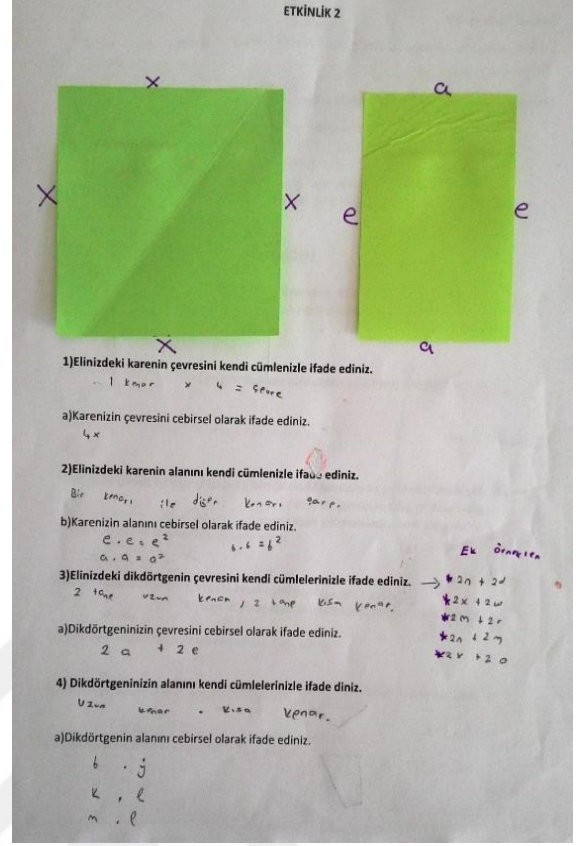 ETKİNLİK 2
x
a
x
x
e
e
x
a
1)Elinizdeki karenin çevresini kendi cümlenizle ifade ediniz.
1 kenar x 4 = çevre
a)Karenizin çevresini cebirsel olarak ifade ediniz.
4x
2)Elinizdeki karenin alanını kendi cümlenizle ifade ediniz.
Bir kenarı ile diğer kenarı çarp.
b)Karenizin alanını cebirsel olarak ifade ediniz.
e.e=e²
b.b=b²
a.a=a²
Ek örnekler
3)Elinizdeki dikdörtgenin çevresini kendi cümlelerinizle ifade ediniz. → *2n + 2d
2 tane uzun kenar, 2 tane kısa kenar.
*2x +2w
*2m +2r
a)Dikdörtgeninizin çevresini cebirsel olarak ifade ediniz.
*2n +2m
2a + 2e
*2v +2o
4) Dikdörtgeninizin alanını kendi cümlelerinizle ifade diniz.
Uzun kenar . kısa kenar.
a)Dikdörtgenin alanını cebirsel olarak ifade ediniz.
b . j
k . l
m . l